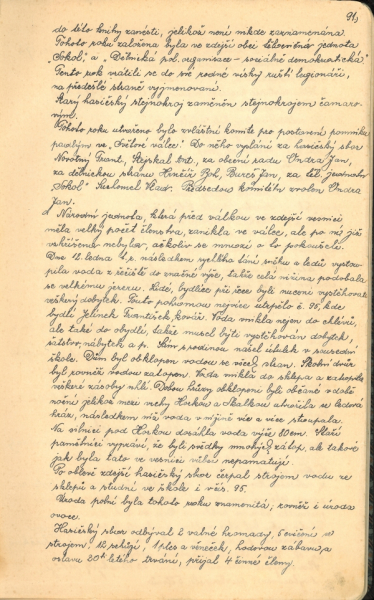 91,
do této knihy zanésti, jelikož není nikde zaznamenána.
Tohoto roku založena byla ve zdejší obci tělocvičná jednota
"Sokol" a "Dělnická pol. organisace – sociálně demokratická"
Tento rok vrátili se do své rodné vísky ruští legionáři,
na předešlé straně vyjmenovaní.
Starý hasičský stejnokroj zaměněn stejnokrojem čamaro-
vým.
Tohoto roku utvořeno bylo zvláštní komité pro postavení pomníku
padlým ve "Světové válce". Do něho vysláni za hasičský sbor
Novotný Frant., Stejskal Ant., za obecní radu Ondra Jan,
za dělnickou stranu Boh., Bureš Jan, za těl. jednotu
"Sokol" Václ. Předsedou komitétu zvolen Ondra
Jan.
Národní jednota, která před válkou ve zdejší vesnici
měla velký počet členstva, zanikla ve válce, ale po ní již
vzkříšena nebyla, ačkoliv se mnozí o to pokoušeli.
Dne 12. ledna t.r. následkem rychlého tání sněhu a ledu vystou-
pila voda z řečiště do značné výše, takže celá nížina podobala
se velkému jezeru. Lidé, bydlící při řece byli nuceni vystěhovat
veškerý dobytek. Touto pohromou nejvíce utrpělo č. 95, kde
bydlí Jelínek František, kovář. Voda vnikla nejen do chlévů,
ale také do obydlí, takže musel býti vystěhován dobytek,
šatstvo, nábytek a p. Sám s rodinou našel útulek v sousední
škole. Dům byl obklopen vodou se všech stran. Školní dvůr
byl rovněž vodou zatopen. Voda vnikla do sklepa a zatopila
veškeré zásoby uhlí. Dobou hrůzy obklopeni byli občané v době
noční jelikož mezi vrchy Horkou a Skalkou utvořila se ledová
kra, následkem níž voda v nížině víc a více stoupala.
Na silnici pod Horkou dosáhla voda výše 80cm. Staří
pamětníci vypráví, že byli svědky mnohých zátop, ale takové
jak byla tato ve vesnici vůbec nepamatují.
Po oblevě zdejší hasičský sbor čerpal strojem vodu ze
sklepů a studní ve škole i v čís. 95.
Úroda polní byla tohoto roku znamenitá, rovněž i úroda
ovoce.
Hasičský sbor odbýval 2 valné hromady, 5 cvičení se
strojem, 12 schůzí, 1 ples a věneček, hodovou zábavu a
oslavu 20ti letého trvání, přijal 4 činné členy.